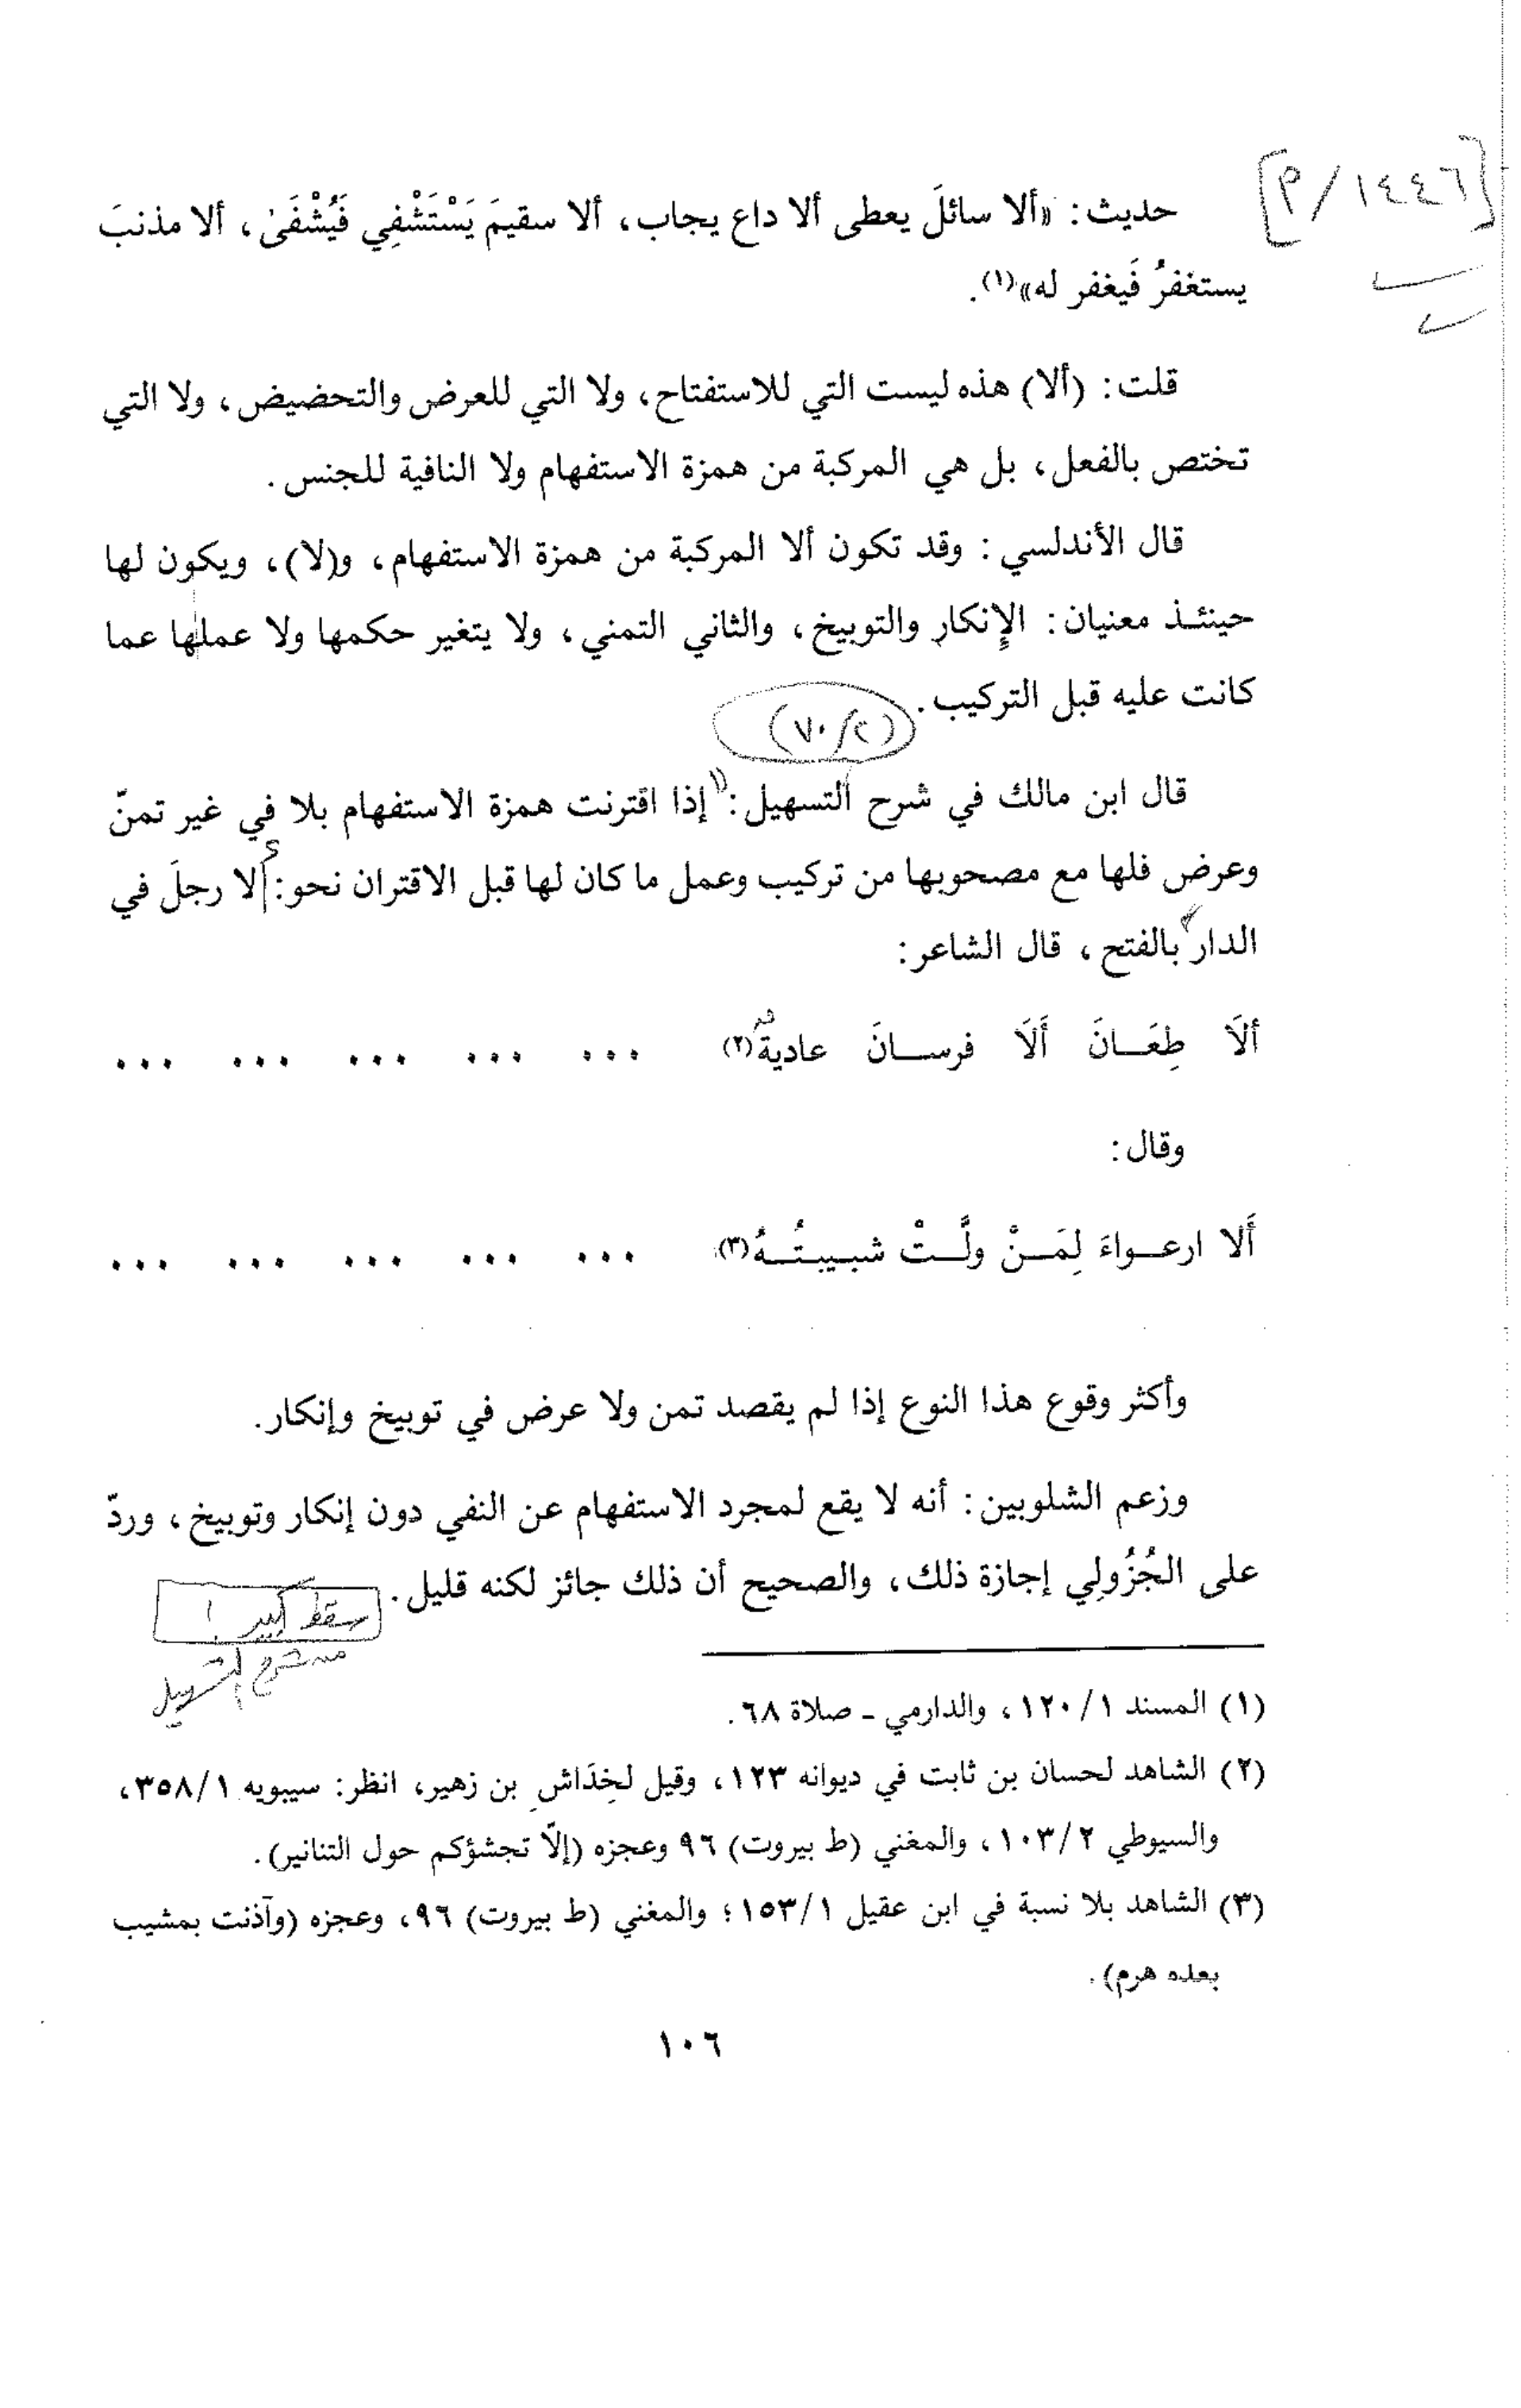 [٩/١٤٤٦]
حديث: «ألا سائلَ يعطى ألا داع يجاب، ألا سقيمَ يَسْتَشْفِي فَيُشْفَىٰ، ألا مذنبَ
يستغفرُ فَيغفر له»(١).
قلت: (ألا) هذه ليست التي للاستفتاح، ولا التي للعرض والتحضيض، ولا التي
تختص بالفعل، بل هي المركبة من همزة الاستفهام ولا النافية للجنس.
قال الأندلسي: وقد تكون ألا المركبة من همزة الاستفهام، و(لا)، ويكون لها
حينئذ معنيان: الإنكار والتوبيخ، والثاني التمني، ولا يتغير حكمها ولا عملها عما
كانت عليه قبل التركيب.
(٢/٧٠)
قال ابن مالك في شرح التسهيل: "إذا اقترنت همزة الاستفهام بلا في غير تمنّ
وعرض فلها مع مصحوبها من تركيب وعمل ما كان لها قبل الاقتران نحو: ألا رجلَ في
الدار بالفتح، قال الشاعر:
ألَا طِعَـانَ أَلَا فرســانَ عاديةً(٢) ... ... ... ... ...
وقال:
أَلا ارعـواءَ لِمَـنْ ولَّـتْ شبـيبـتُـهُ(٣) ... ... ... ... ...
وأكثر وقوع هذا النوع إذا لم يقصد تمن ولا عرض في توبيخ وإنكار.
وزعم الشلوبين: أنه لا يقع لمجرد الاستفهام عن النفي دون إنكار وتوبيخ، وردّ
على الجُزُولِي إجازة ذلك، والصحيح أن ذلك جائز لكنه قليل.
سقط كبير!
من شرح التسهيل
(١) المسند ١/١٢٠، والدارمي ـ صلاة ٦٨.
(٢) الشاهد لحسان بن ثابت في ديوانه ١٢٣، وقيل لخِدَاشِ بن زهير، انظر: سيبويه ١/٣٥٨،
والسيوطي ٢/١٠٣، والمغني (ط بيروت) ٩٦ وعجزه (إلّا تجشؤكم حول التنانير).
(٣) الشاهد بلا نسبة في ابن عقيل ١/١٥٣؛ والمغني (ط بيروت) ٩٦، وعجزه (وآذنت بمشيب
بعده هرم).
١٠٦